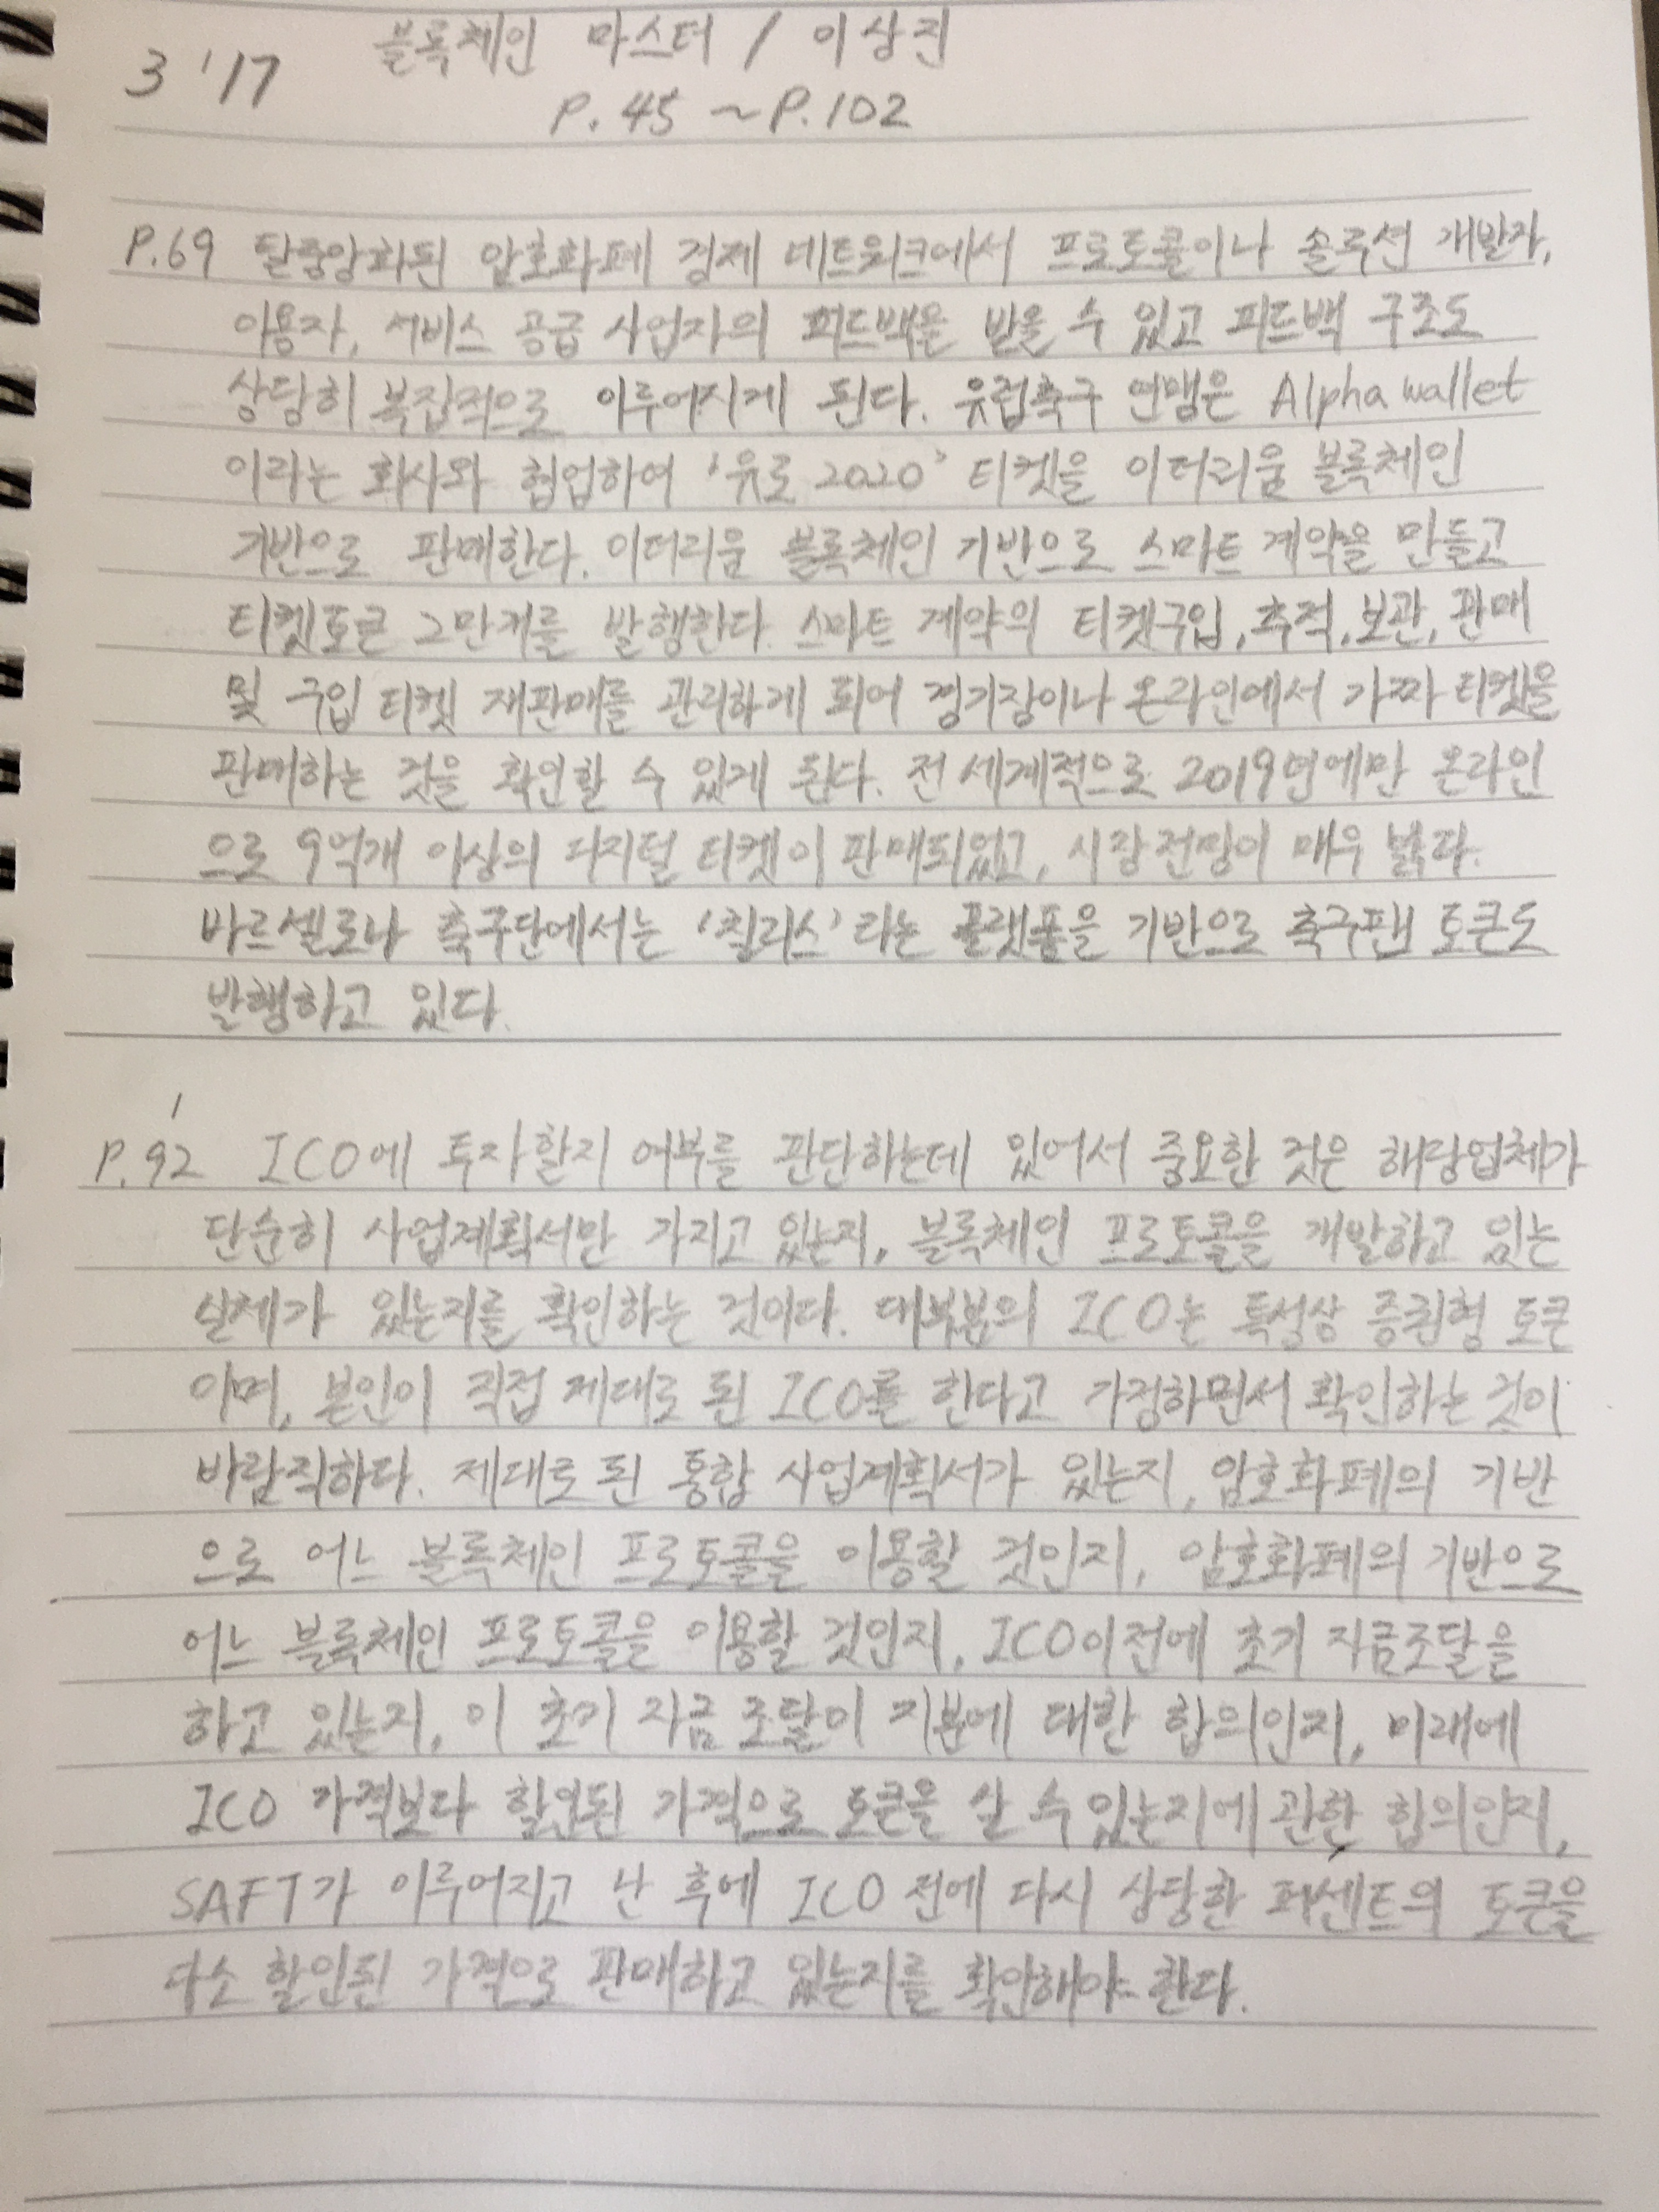 블록체인 마스터 / 이상진
3 '17
P. 45 ~ P. 102
P.69 탈중앙화된 암호화폐 경제 네트워크에서 프로토콜이나 솔루션 개발자,
이용자, 서비스 공급 사업자의 피드백을 받을 수 있고 피드백 구조도
상당히 복집적으로 이루어지게 된다. 유럽축구 연맹은 Alpha wallet
이라는 회사와 협업하여 '유로 2020' 티켓을 이더리움 블록체인
기반으로 판매한다. 이더리움 블록체인 기반으로 스마트 계약을 만들고
티켓토큰 2만개를 발행한다. 스마트 계약의 티켓구입, 추적, 보관, 판매
및 구입 티켓 재판매를 관리하게 되어 경기장이나 온라인에서 가짜 티켓을
판매하는 것을 확인할 수 있게 된다. 전 세계적으로 2019년에만 온라인
으로 9억개 이상의 디지털 티켓이 판매되었고, 시장전망이 매우 밝다.
바르셀로나 축구단에서는 '칠리스'라는 플랫폼을 기반으로 축구팬 토큰도
발행하고 있다.
P.92 ICO에 투자할지 여부를 판단하는데 있어서 중요한 것은 해당업체가
단순히 사업계획서만 가지고 있는지, 블록체인 프로토콜을 개발하고 있는
실체가 있는지를 확인하는 것이다. 대부분의 ICO는 특성상 증권형 토큰
이며, 본인이 직접 제대로 된 ICO를 한다고 가정하면서 확인하는 것이
바람직하다. 제대로 된 통합 사업계획서가 있는지, 암호화폐의 기반
으로 어느 블록체인 프로토콜을 이용할 것인지, 암호화폐의 기반으로
어느 블록체인 프로토콜을 이용할 것인지, ICO이전에 초기 자금조달을
하고 있는지, 이 초기 자금 조달이 지분에 대한 합의인지, 미래에
ICO 가격보다 할인된 가격으로 토큰을 살 수 있는지에 관한 합의인지,
SAFT가 이루어지고 난 후에 ICO 전에 다시 상당한 퍼센트의 토큰을
다소 할인된 가격으로 판매하고 있는지를 확인해야 한다.